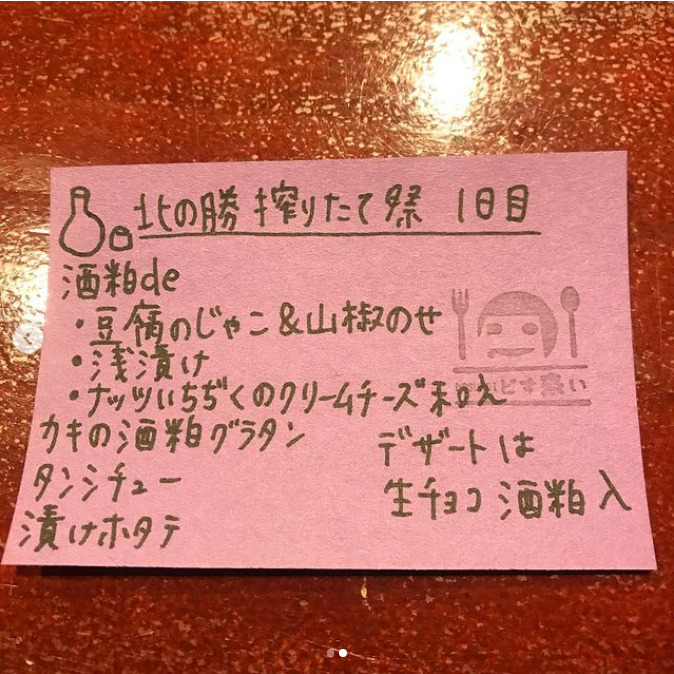 北の勝 搾りたて祭 1日目
酒粕de
・豆腐のじゃこ&山椒のせ
・浅漬け
・ナッツいちぢくのクリームチーズ和え
カキの酒粕グラタン
タンシチュー
漬けホタテ
デザートは
生チョコ 酒粕入